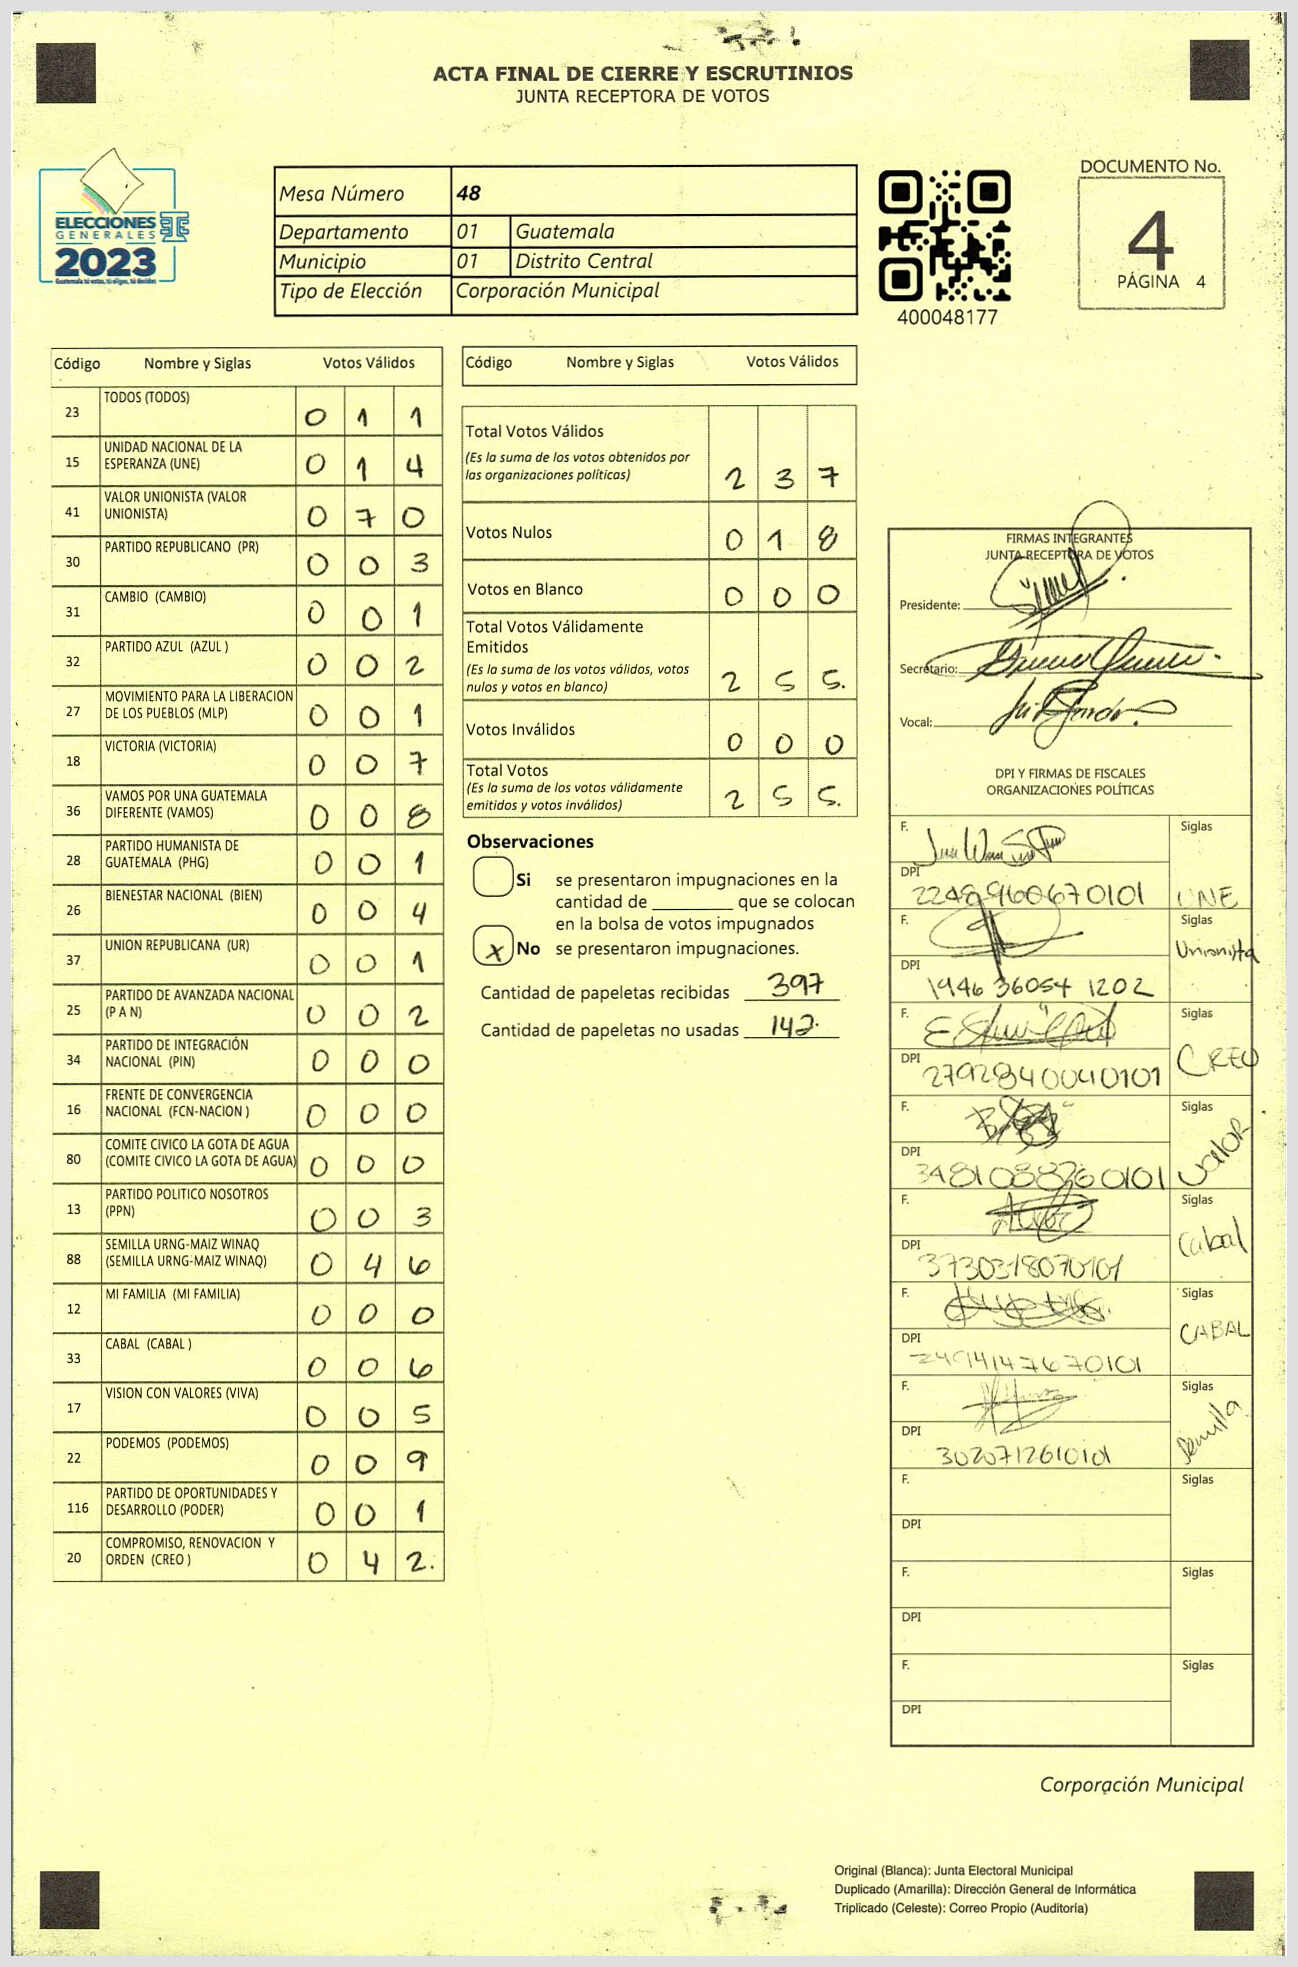 ACTA FINAL DE CIERRE Y ESCRUTINIOS
JUNTA RECEPTORA DE VOTOS
ELECCIONES
GENERALES
2023
Guatemala tú votas, tú eliges, tú decides
Mesa Número 48
Departamento 01 Guatemala
Municipio 01 Distrito Central
Tipo de Elección Corporación Municipal
400048177
DOCUMENTO No.
4
PÁGINA 4
Código Nombre y Siglas Votos Válidos
23 TODOS (TODOS) 0 1 1
15 UNIDAD NACIONAL DE LA
ESPERANZA (UNE) 0 1 4
41 VALOR UNIONISTA (VALOR
UNIONISTA) 0 7 0
30 PARTIDO REPUBLICANO (PR) 0 0 3
31 CAMBIO (CAMBIO) 0 0 1
32 PARTIDO AZUL (AZUL ) 0 0 2
27 MOVIMIENTO PARA LA LIBERACION
DE LOS PUEBLOS (MLP) 0 0 1
18 VICTORIA (VICTORIA) 0 0 7
36 VAMOS POR UNA GUATEMALA
DIFERENTE (VAMOS) 0 0 8
28 PARTIDO HUMANISTA DE
GUATEMALA (PHG) 0 0 1
26 BIENESTAR NACIONAL (BIEN) 0 0 4
37 UNION REPUBLICANA (UR) 0 0 1
25 PARTIDO DE AVANZADA NACIONAL
(P A N) 0 0 2
34 PARTIDO DE INTEGRACIÓN
NACIONAL (PIN) 0 0 0
16 FRENTE DE CONVERGENCIA
NACIONAL (FCN-NACION ) 0 0 0
80 COMITE CIVICO LA GOTA DE AGUA
(COMITE CIVICO LA GOTA DE AGUA) 0 0 0
13 PARTIDO POLITICO NOSOTROS
(PPN) 0 0 3
88 SEMILLA URNG-MAIZ WINAQ
(SEMILLA URNG-MAIZ WINAQ) 0 4 6
12 MI FAMILIA (MI FAMILIA) 0 0 0
33 CABAL (CABAL ) 0 0 6
17 VISION CON VALORES (VIVA) 0 0 5
22 PODEMOS (PODEMOS) 0 0 9
116 PARTIDO DE OPORTUNIDADES Y
DESARROLLO (PODER) 0 0 1
20 COMPROMISO, RENOVACION Y
ORDEN (CREO ) 0 4 2.
Código Nombre y Siglas Votos Válidos
Total Votos Válidos
(Es la suma de los votos obtenidos por
las organizaciones políticas) 2 3 7
Votos Nulos 0 1 8
Votos en Blanco 0 0 0
Total Votos Válidamente
Emitidos
(Es la suma de los votos válidos, votos
nulos y votos en blanco) 2 5 5.
Votos Inválidos 0 0 0
Total Votos
(Es la suma de los votos válidamente
emitidos y votos inválidos) 2 5 5.
Observaciones
Si se presentaron impugnaciones en la
cantidad de ________ que se colocan
en la bolsa de votos impugnados
x No se presentaron impugnaciones.
Cantidad de papeletas recibidas 397
Cantidad de papeletas no usadas 142.
FIRMAS INTEGRANTES
JUNTA RECEPTORA DE VOTOS
Presidente:
Secretario:
Vocal:
DPI Y FIRMAS DE FISCALES
ORGANIZACIONES POLÍTICAS
F. Siglas
DPI 2248960670101 UNE
F. Siglas
Unionista
DPI 1946 36054 1202
F. Siglas
DPI 2792840040101 CREO
F. Siglas
DPI 3481088260101 Valor
F. Siglas
DPI 3730318070101 Cabal
F. Siglas
DPI 2494147670101 CABAL
F. Siglas
DPI 3020712610101 Semilla
F. Siglas
DPI
F. Siglas
DPI
F. Siglas
DPI
Corporación Municipal
Original (Blanca): Junta Electoral Municipal
Duplicado (Amarilla): Dirección General de Informática
Triplicado (Celeste): Correo Propio (Auditoría)